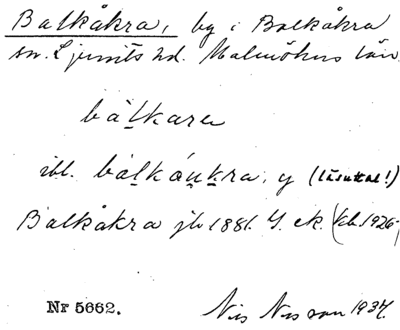 Balkåkra, by i Balkåkra
sn. Ljunits hd. Malmöhus län.
bàlkaren
ibl. bàlkáukra, y (läsuttal!)
Balkåkra jb 1881. Y. ek. (kb. 1926-
Nr 5662. Nis Nisson 1934.